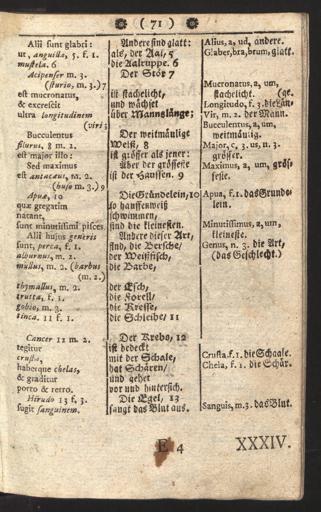 ( 71 )
Alii sunt glabri:
ut, anguilla, 5. f. 1.
mustela. 6
Acipenser m. 3.
(sturio, m. 3.) 7
est mucronatus,
& excrescit
ultra longitudinem
(viri 3
Bucculentus
silurus, 8 m. 2.
est major illo:
Sed maximus
est antacæus, m. 2.
(huso m. 3.) 9
Apuæ, 10
quæ gregatim
natant,
sunt minutissimi pisces.
Alii hujus generis
sunt, perca, f. 1.
alburnus, m. 2.
mullus, m. 2. (barbus
(m. 2.)
thymallus, m. 2.
trutta, f. 1.
gobio, m. 3.
tinca. 11 f. 1.
Cancer 11 m. 2.
tegitur
crusta,
habetque chelas,
& graditur
porro & retro.
Hirudo 13 f. 3.
sugit sanguinem.
Andere sind glatt:
als, der Aal, 5
die Aalruppe. 6
Der Stör 7
ist stachelicht,
und wächset
über Mannslänge;
Der weitmäulige
Welß, 8
ist grösser als jener:
Aber der grösseste
ist der Haussen. 9
Die Gründelein, 10
so hauffenweiß
schwimmen,
sind die kleinesten.
Andere dieser Art,
sind, die Bersche,
der Weißfisch,
die Barbe,
der Esch,
die Forell,
die Kresse,
die Schleihe. 11
Der Krebs, 12
ist bedeckt
mit der Schale,
hat Schären,
und gehet
vor und hintersich.
Die Egel, 13
saugt das Blut aus.
Alius, a, ud, andere.
Glaber, bra, brum, glatt.
Mucronatus, a, um,
stachelicht. (ge.
Longitudo, f. 3. die Län-
Vir, m. 2. der Mann.
Bucculentus, a, um,
weitmäulig.
Major, c, 3. us, n. 3.
grösser.
Maximus, a, um, grös-
seste.
Apua, f. 1. das Grunde-
lein.
Minutissimus, a, um,
kleineste.
Genus, n. 3. die Art,
(das Geschlecht.)
Crusta. f. 1. die Schaale.
Chela, f. 1. die Schär.
Sanguis, m. 3. das Blut.
E 4
XXXIV.